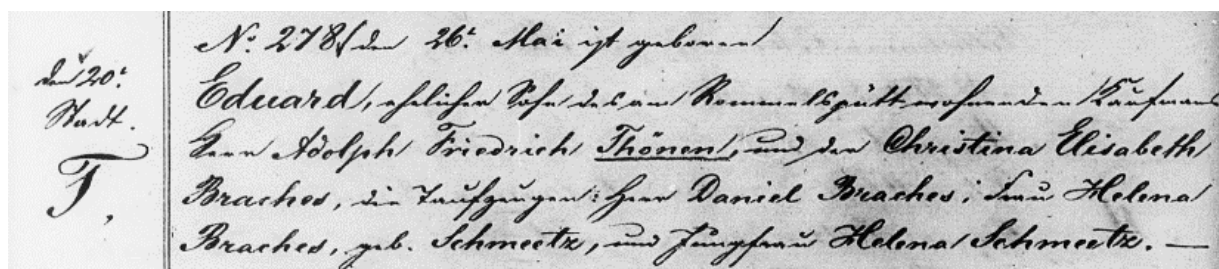 den 20t.
Stadt.
T,
No. 278, den 26t. Mai ist geboren
Eduard, ehelicher Sohn des am Rommelspütt wohnenden Kaufmans
Herr Adolph Friedrich Thönen, und der Christina Elisabeth
Braches, die Taufzeugen: Herr Daniel Braches; Frau Helena
Braches, geb. Schmeetz, und Jungfrau Helena Schmeetz. —